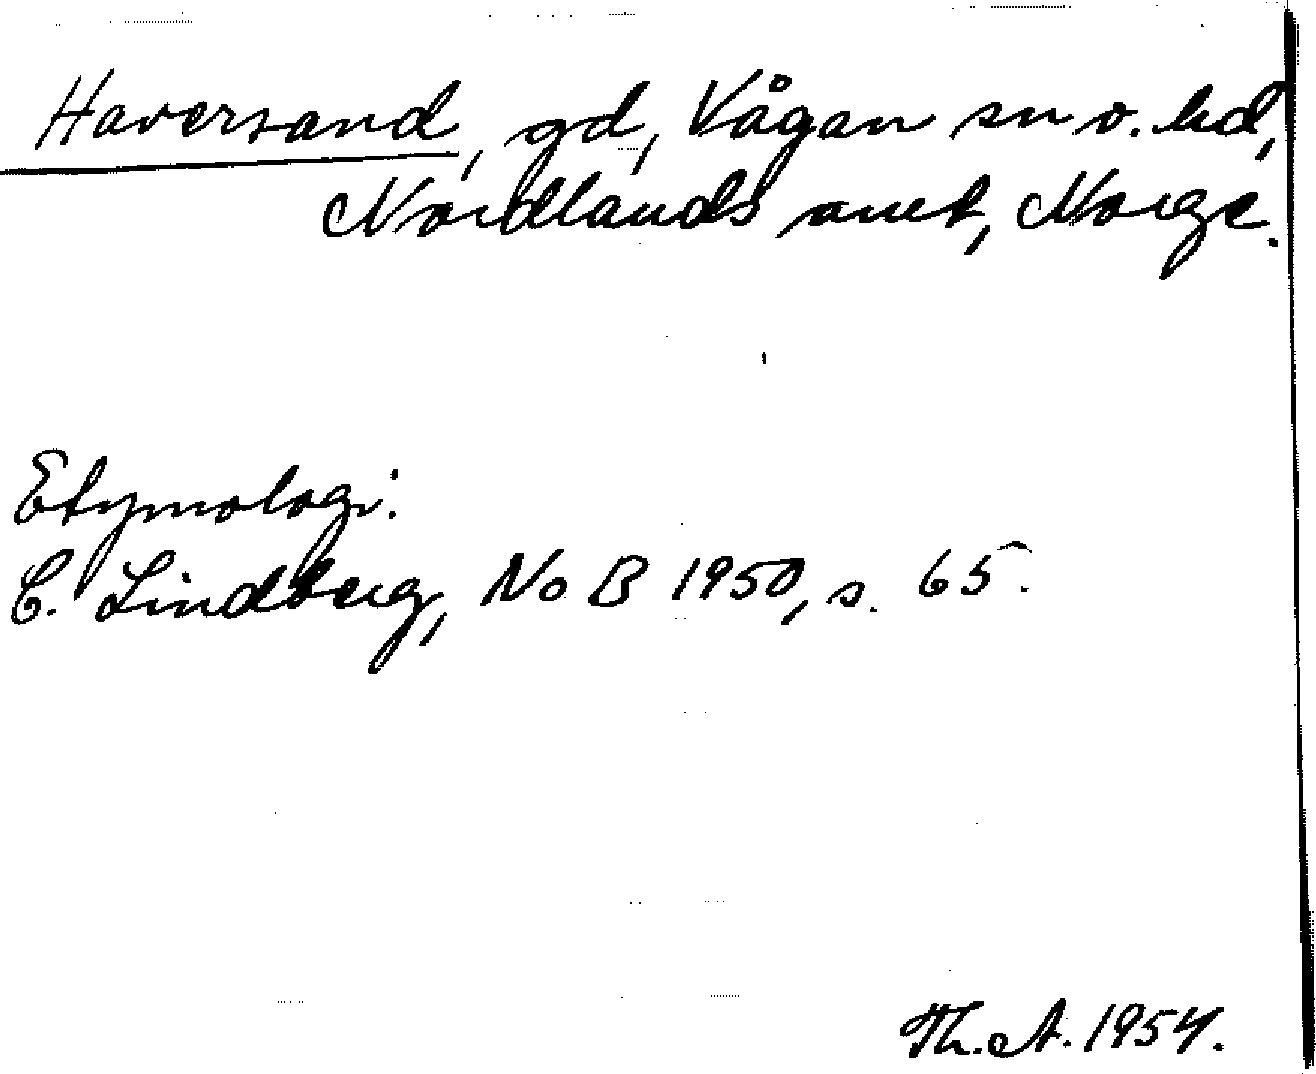 Haversand, gd, Vågan sn o. hd,
Nordlands amt, Norge.
Etymologi:
C. Lindberg, NoB 1950, s. 65.
Th. A. 1954.